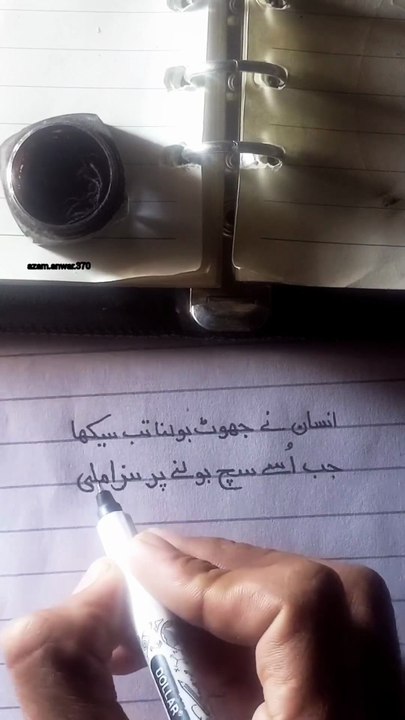 azam.anwar.370
انسان نے جھوٹ بولنا تب سیکھا
جب اُسے سچ بولنے پر سزا ملی
DOLLAR